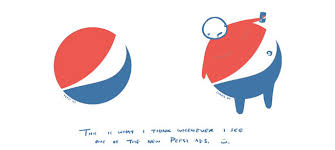 THIS IS WHAT I THINK WHENEVER I SEE
ONE OF THE NEW PEPSI ADS.